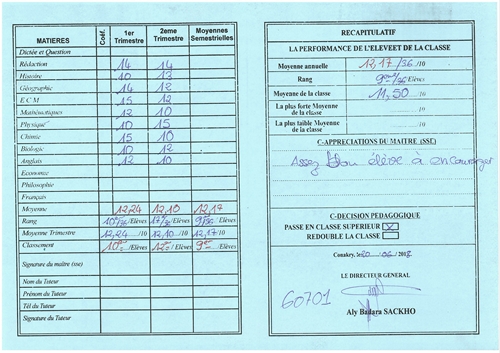 MATIERES Coéf. 1er Trimestre 2eme Trimestre Moyennes Semestrielles
Dictée et Question
Rédaction 14 14
Histoire 10 13
Géographie 14 12
E C M 15 12
Mathématiques 12 10
Physique 10 15
Chimie 15 10
Biologie 10 12
Anglais 12 10
Economie
Philosophie
Français
Moyenne 12,24 12,10 12,17
Rang /Elèves /Elèves /Elèves
Moyenne Trimestre 12,24 /10 12,10 /10 12,17 /10
Classement /Elèves /Elèves /Elèves
Signature du maître (sse)
Nom du Tuteur
Prénom du Tuteur
Tél du Tuteur
Signature du Tuteur
RECAPITULATIF
LA PERFORMANCE DE L'ELEVEET DE LA CLASSE
Moyenne annuelle 12,17 /36 /10
Rang 9eme /36 Elèves
Moyenne de la classe 11,50 /10
La plus forte Moyenne de la classe /10
La plus faible Moyenne de la classe /10
C-APPRECIATIONS DU MAITRE (SSE)
Assez bon élève à encourager
C-DECISION PEDAGOGIQUE
PASSE EN CLASSE SUPERIEUR X
REDOUBLE LA CLASSE
Conakry, le 20 06 /201
LE DIRECTEUR GENERAL
60701
Aly Badara SACKHO